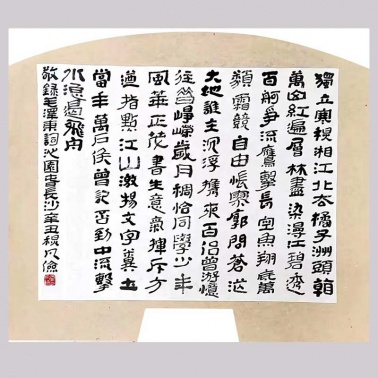 獨立寒秋湘江北去橘子洲頭看
萬山紅遍層林盡染漫江碧透
百舸爭流鷹擊長空魚翔底萬
類霜競自由悵寥廓問蒼茫
大地誰主沉浮攜來百侶曾游憶
往昔崢嶸歲月稠恰同學少年
風華正茂書生意氣揮斥方
遒指點江山激揚文字糞土
當年萬戶侯曾記否到中流擊
水浪遏飛舟
敬錄毛澤東詞沁園春長沙辛丑秋月儉